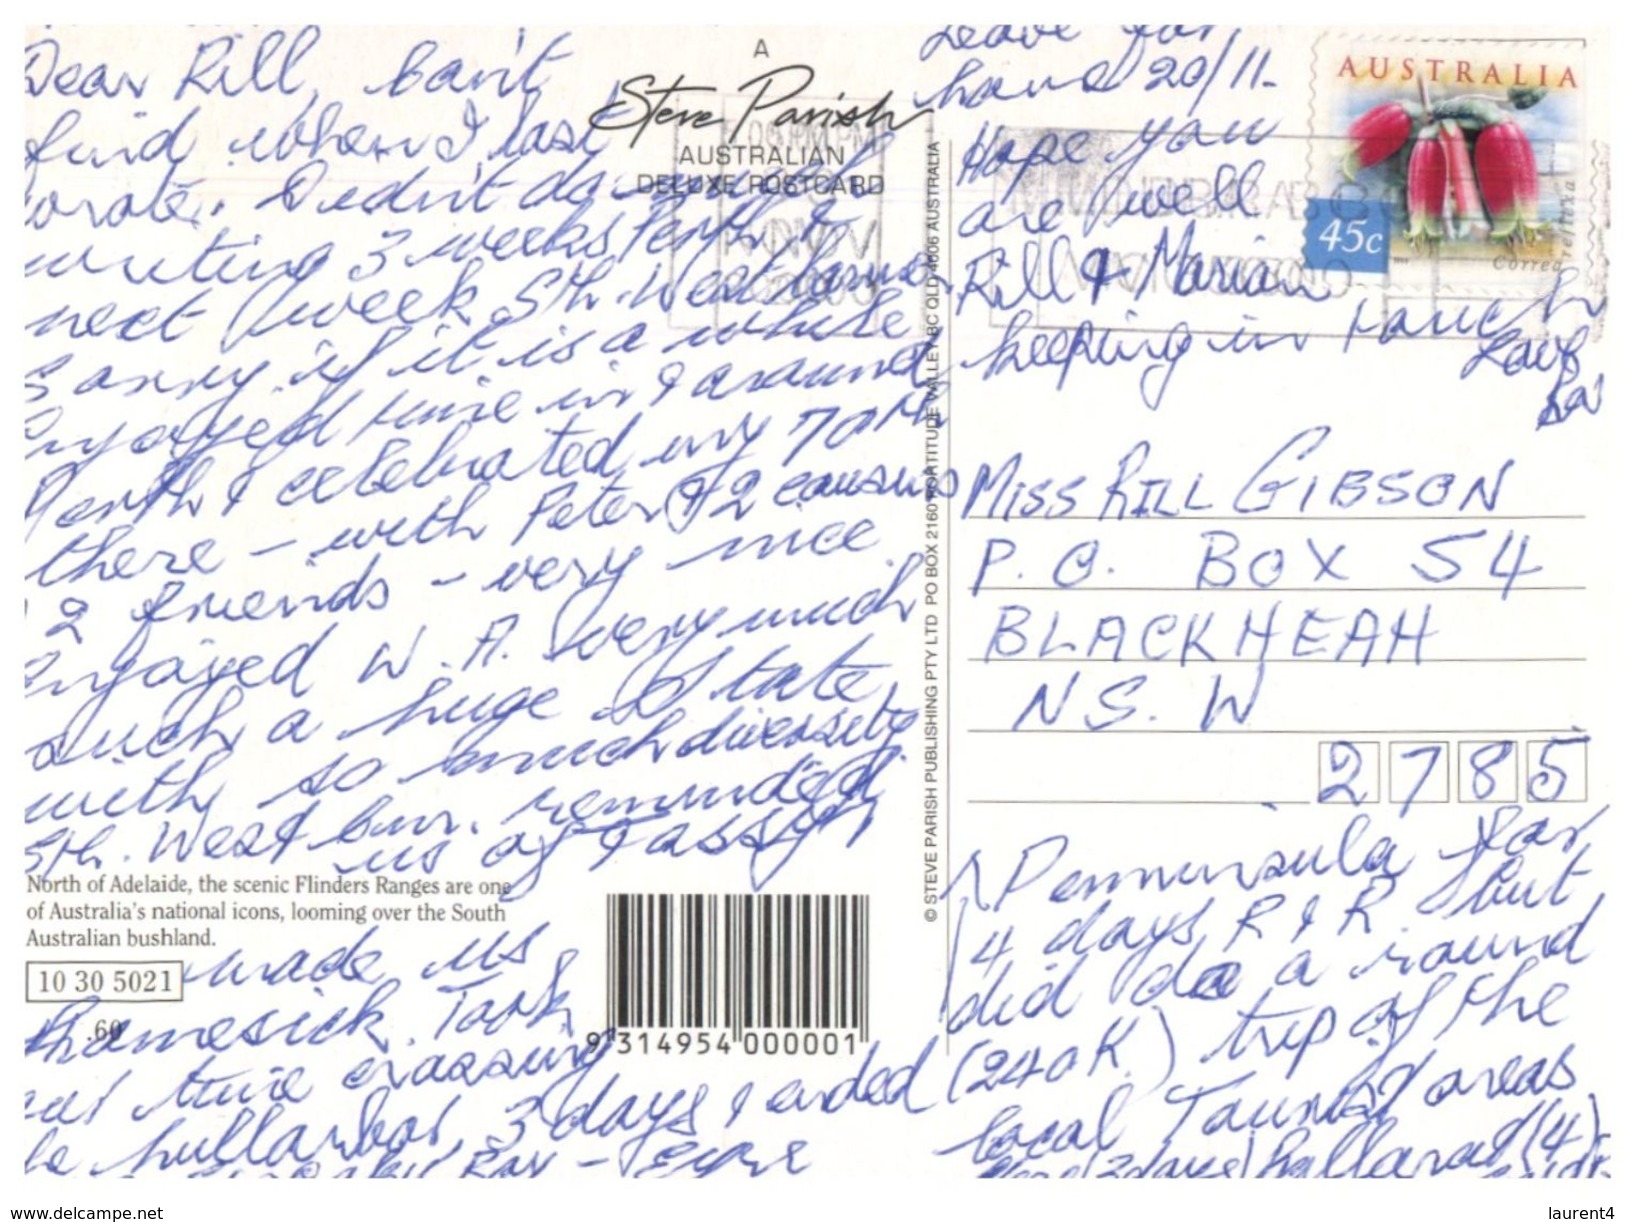 Dear Rill, Can't
find when I last
wrote. Didn't do much
writing 3 weeks Perth &
next week Sth. West corner
Sorry if it is a while
Enjoyed time in & around
Perth & celebrated my 70th
there - with Peter & 2 cousins
2 friends - very nice
Enjoyed W. A. very much
such a huge State
with so much diversity
Sth. West
reminded
us of Tassy,
made us
homesick. Took
our time crossing
the nullarbor, 3 days & ended
Bay - Eyre
Penninsula for
4 days R & R but
did do a round
(240 K.) trip of the
local Tourist areas
(2 days) Ballarat (4)
Leave for
home 20/11.
Hope you
are well
Rill & Marian
keeping in touch
Love
A
Steve Parish
AUSTRALIAN
DELUXE POSTCARD
NOV
© STEVE PARISH PUBLISHING PTY LTD PO BOX 2160 FORTITUDE VALLEY BC QLD 4006 AUSTRALIA
AUSTRALIA
45c
Correa reflexa
MISS RILL GIBSON
P.O. BOX 54
BLACKHEAH
N.S.W
2785
North of Adelaide, the scenic Flinders Ranges are one
of Australia's national icons, looming over the South
Australian bushland.
10 30 5021
.60
9 314954 000001
www.delcampe.net
laurent4